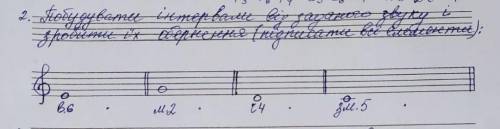 2. Побудувати інтервали від заданого звуку і
зробити їх обернення (підписати всі елементи):
в.6 м.2 ч4 зм.5